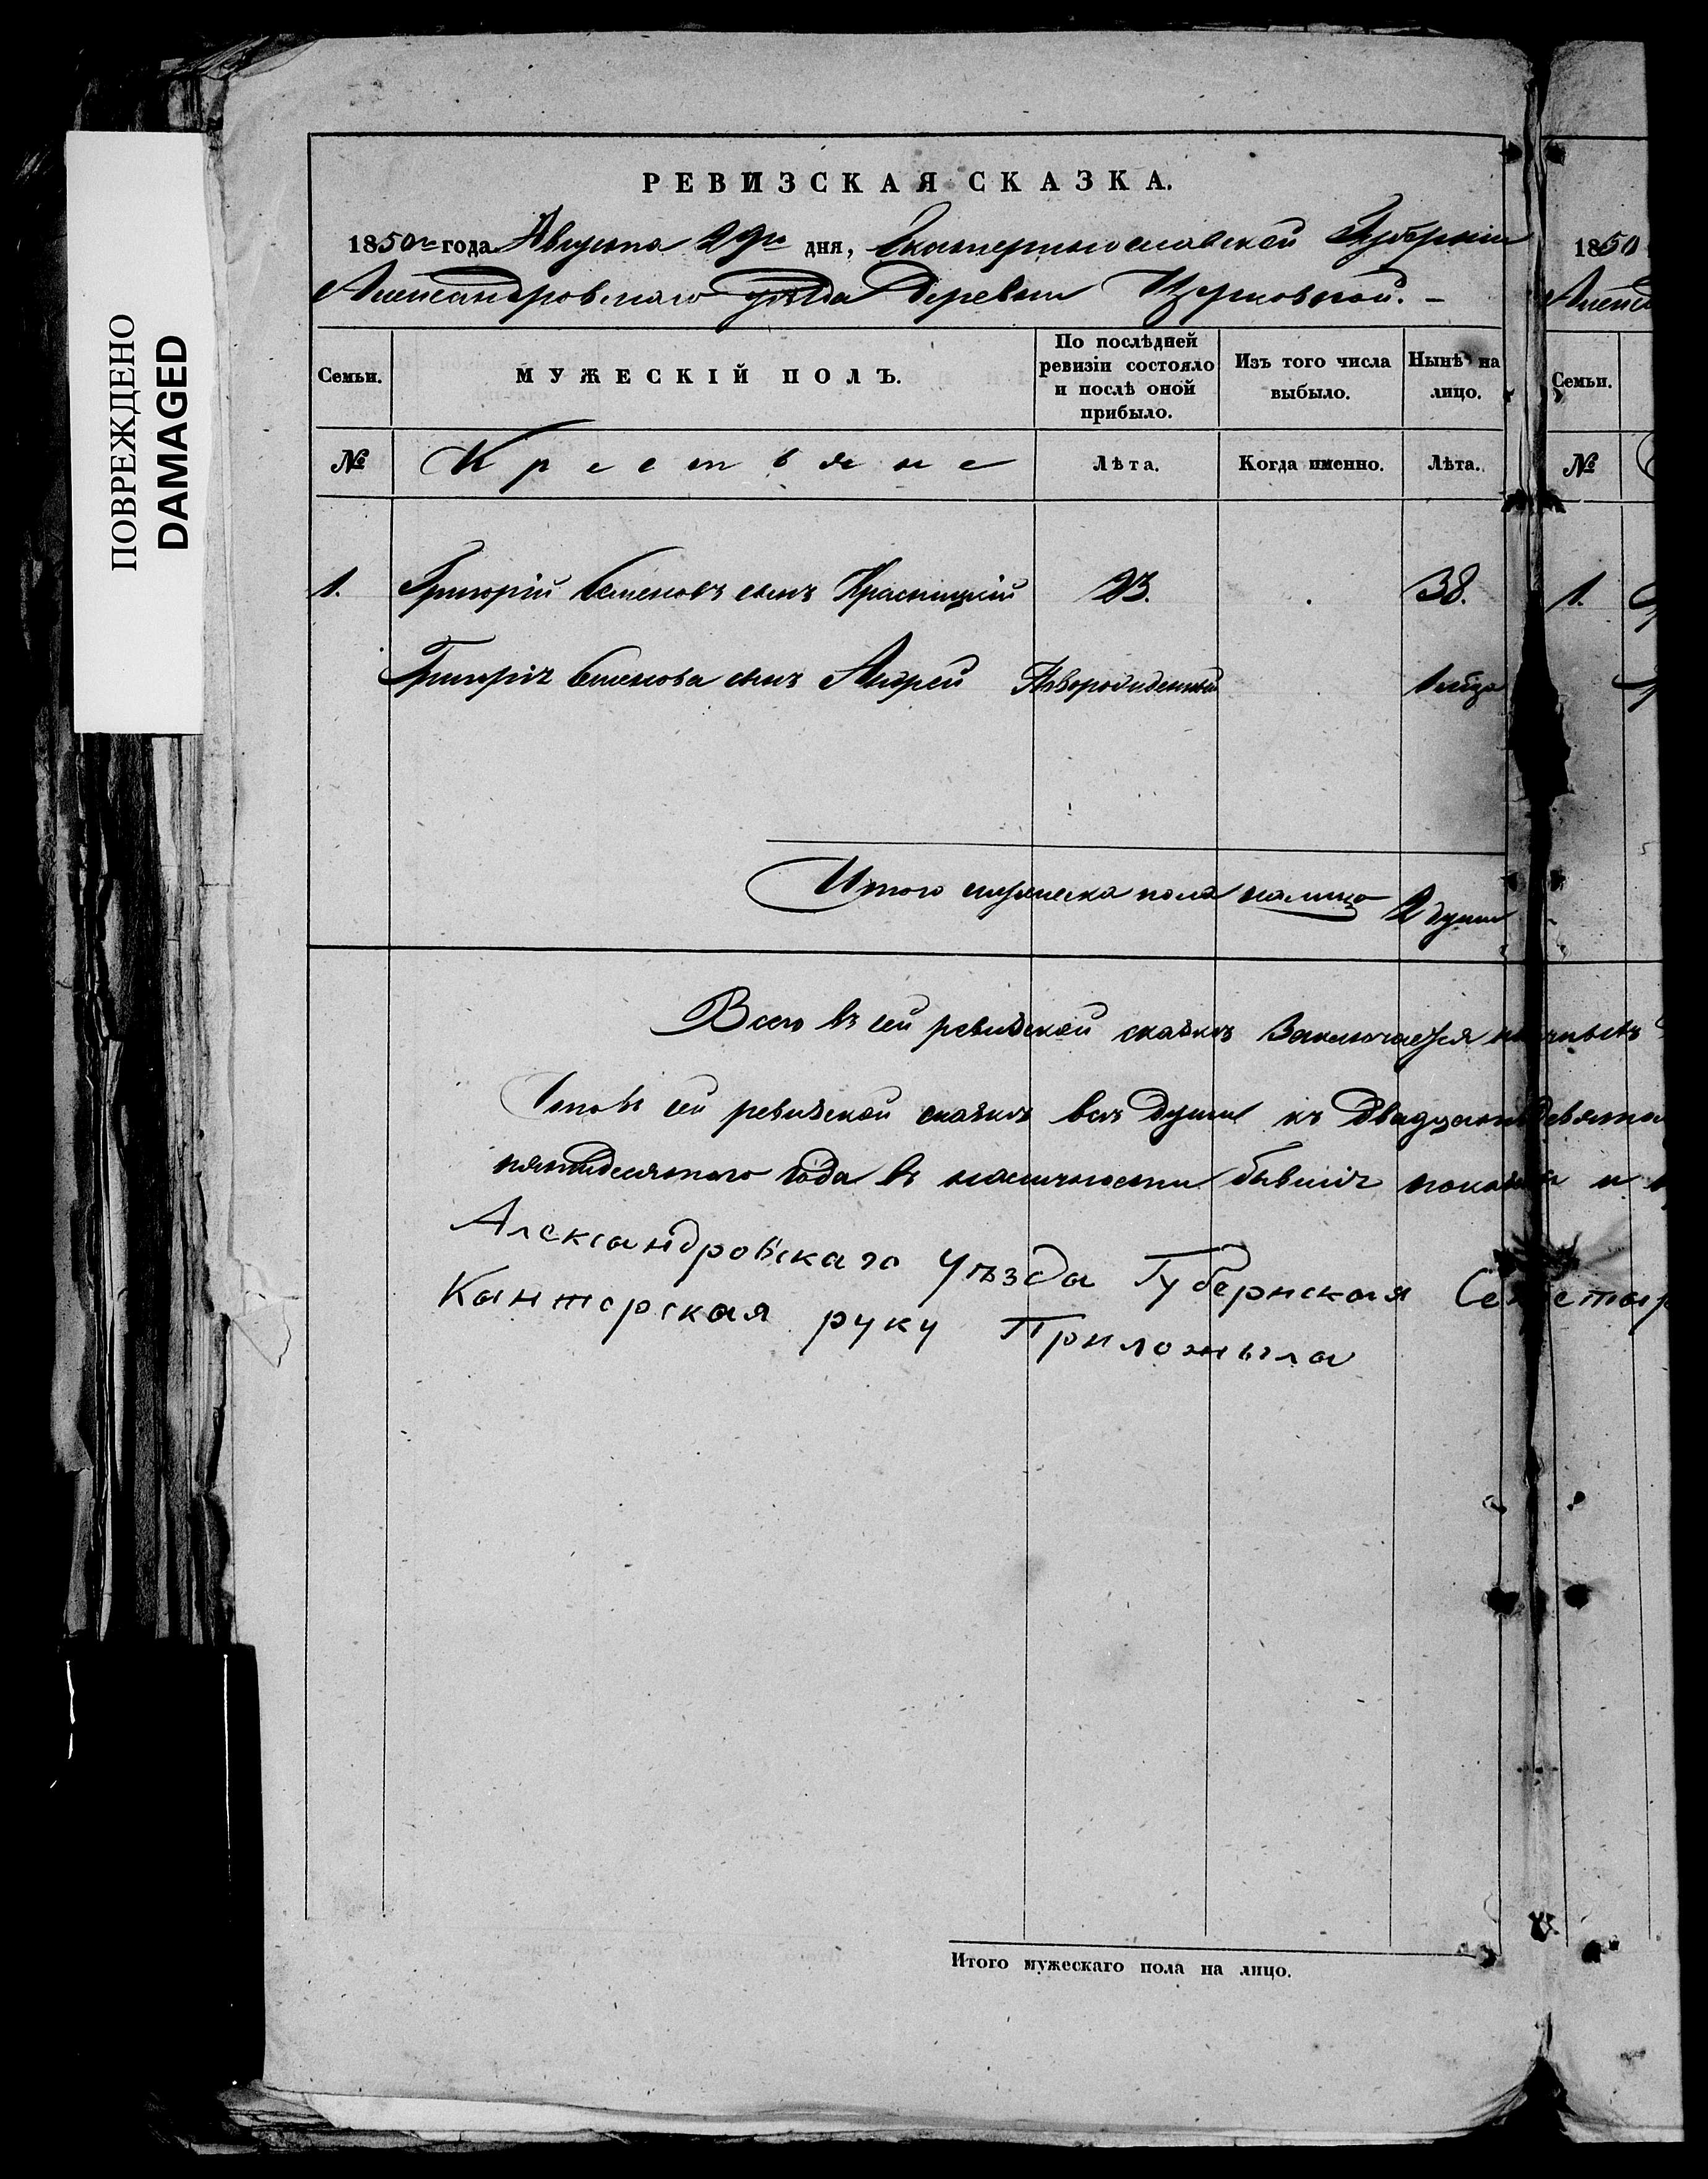 ПОВРЕЖДЕНО
DAMAGED
РЕВИЗСКАЯ СКАЗКА.
1850го года Августа 29го дня, Екатеринославской Губернии
Александровскаго уѣзда Деревни
Семьи.
МУЖЕСКІЙ ПОЛЪ.
По послѣдней ревизіи состояло и послѣ оной прибыло.
Изъ того числа выбыло.
Нынѣ на лицо.
№
Крестьяне
Лѣта.
Когда именно.
Лѣта.
1. Григорій Семеновъ сынъ Красницкій 23. 38.
Григорія Семенова сынъ Андрей Новорожденный
Итого мужеска пола налицо 2 души
Всего въ сей ревизской сказкѣ Заключается
Что въ сей ревизской сказкѣ всѣ души къ Двадцать девято
пятидесятого года въ наличности бывшіе и
Александровскаго Уѣзда Губернская
Канторская руку Приложыла
Итого мужескаго пола на лицо.
1850
Семьи.
№
1.